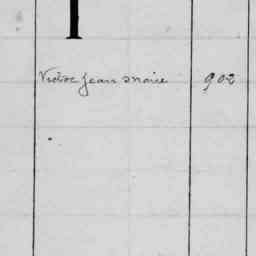 I
Victor Jean Marie 902